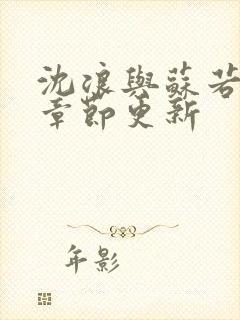 沈浪與蘇若
章節更新
年影